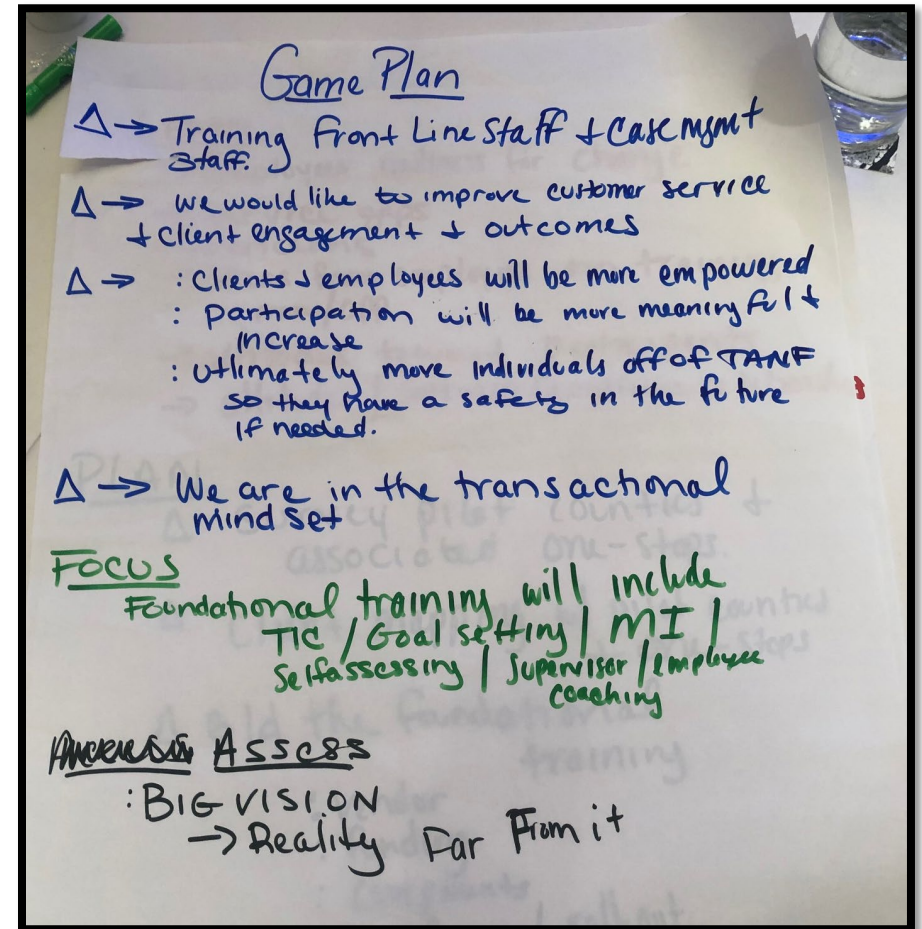 Game Plan
Δ → Training Front Line Staff + Case mgmt
staff.
Δ → we would like to improve customer service
+ client engagement + outcomes
Δ → : Clients + employees will be more empowered
: participation will be more meaningful +
increase
: Utlimately move individuals off of TANF
so they have a safety in the future
if needed.
Δ → We are in the transactional
mind set
FOCUS
Foundational training will include
TIC / Goal setting | MI |
Selfassessing | Supervisor / employee
coaching
Assess
: BIG VISION
→ Reality Far From it
PLAN
pilot counties +
associated one-stops.
the foundational
training